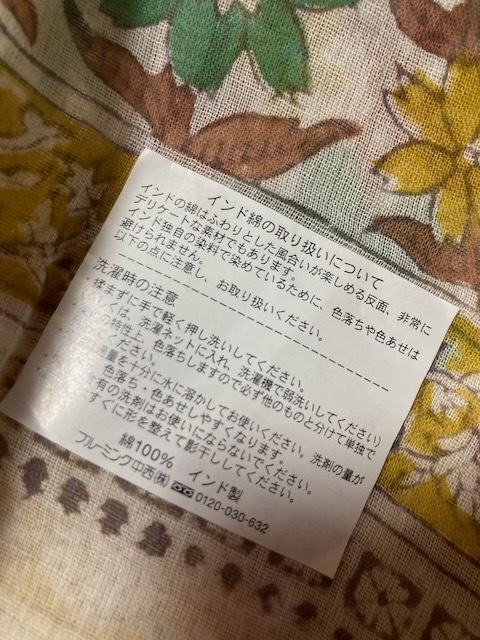 インド綿の取り扱いについて
インドの綿はふわりとした風合いが楽しめる反面、非常に
デリケートな素材でもあります。
インド独自の染料で染めているために、色落ちや色あせは
避けられません。
以下の点に注意し、お取り扱いください。
洗濯時の注意
揉まずに手で軽く押し洗いしてください。
くは、洗濯ネットに入れ、洗濯機で弱洗いしてください)
の特性上、色落ちしますので必ず他のものと分けて単独で
ください。
適量を十分に水に溶かしてお使いください。洗剤の量が
色落ち・色あせしやすくなります。
有の洗剤はお使いにならないでください。
すぐに形を整えて影干ししてください。
綿100% インド製
ブルーミング中西㈱ 0120-030-632